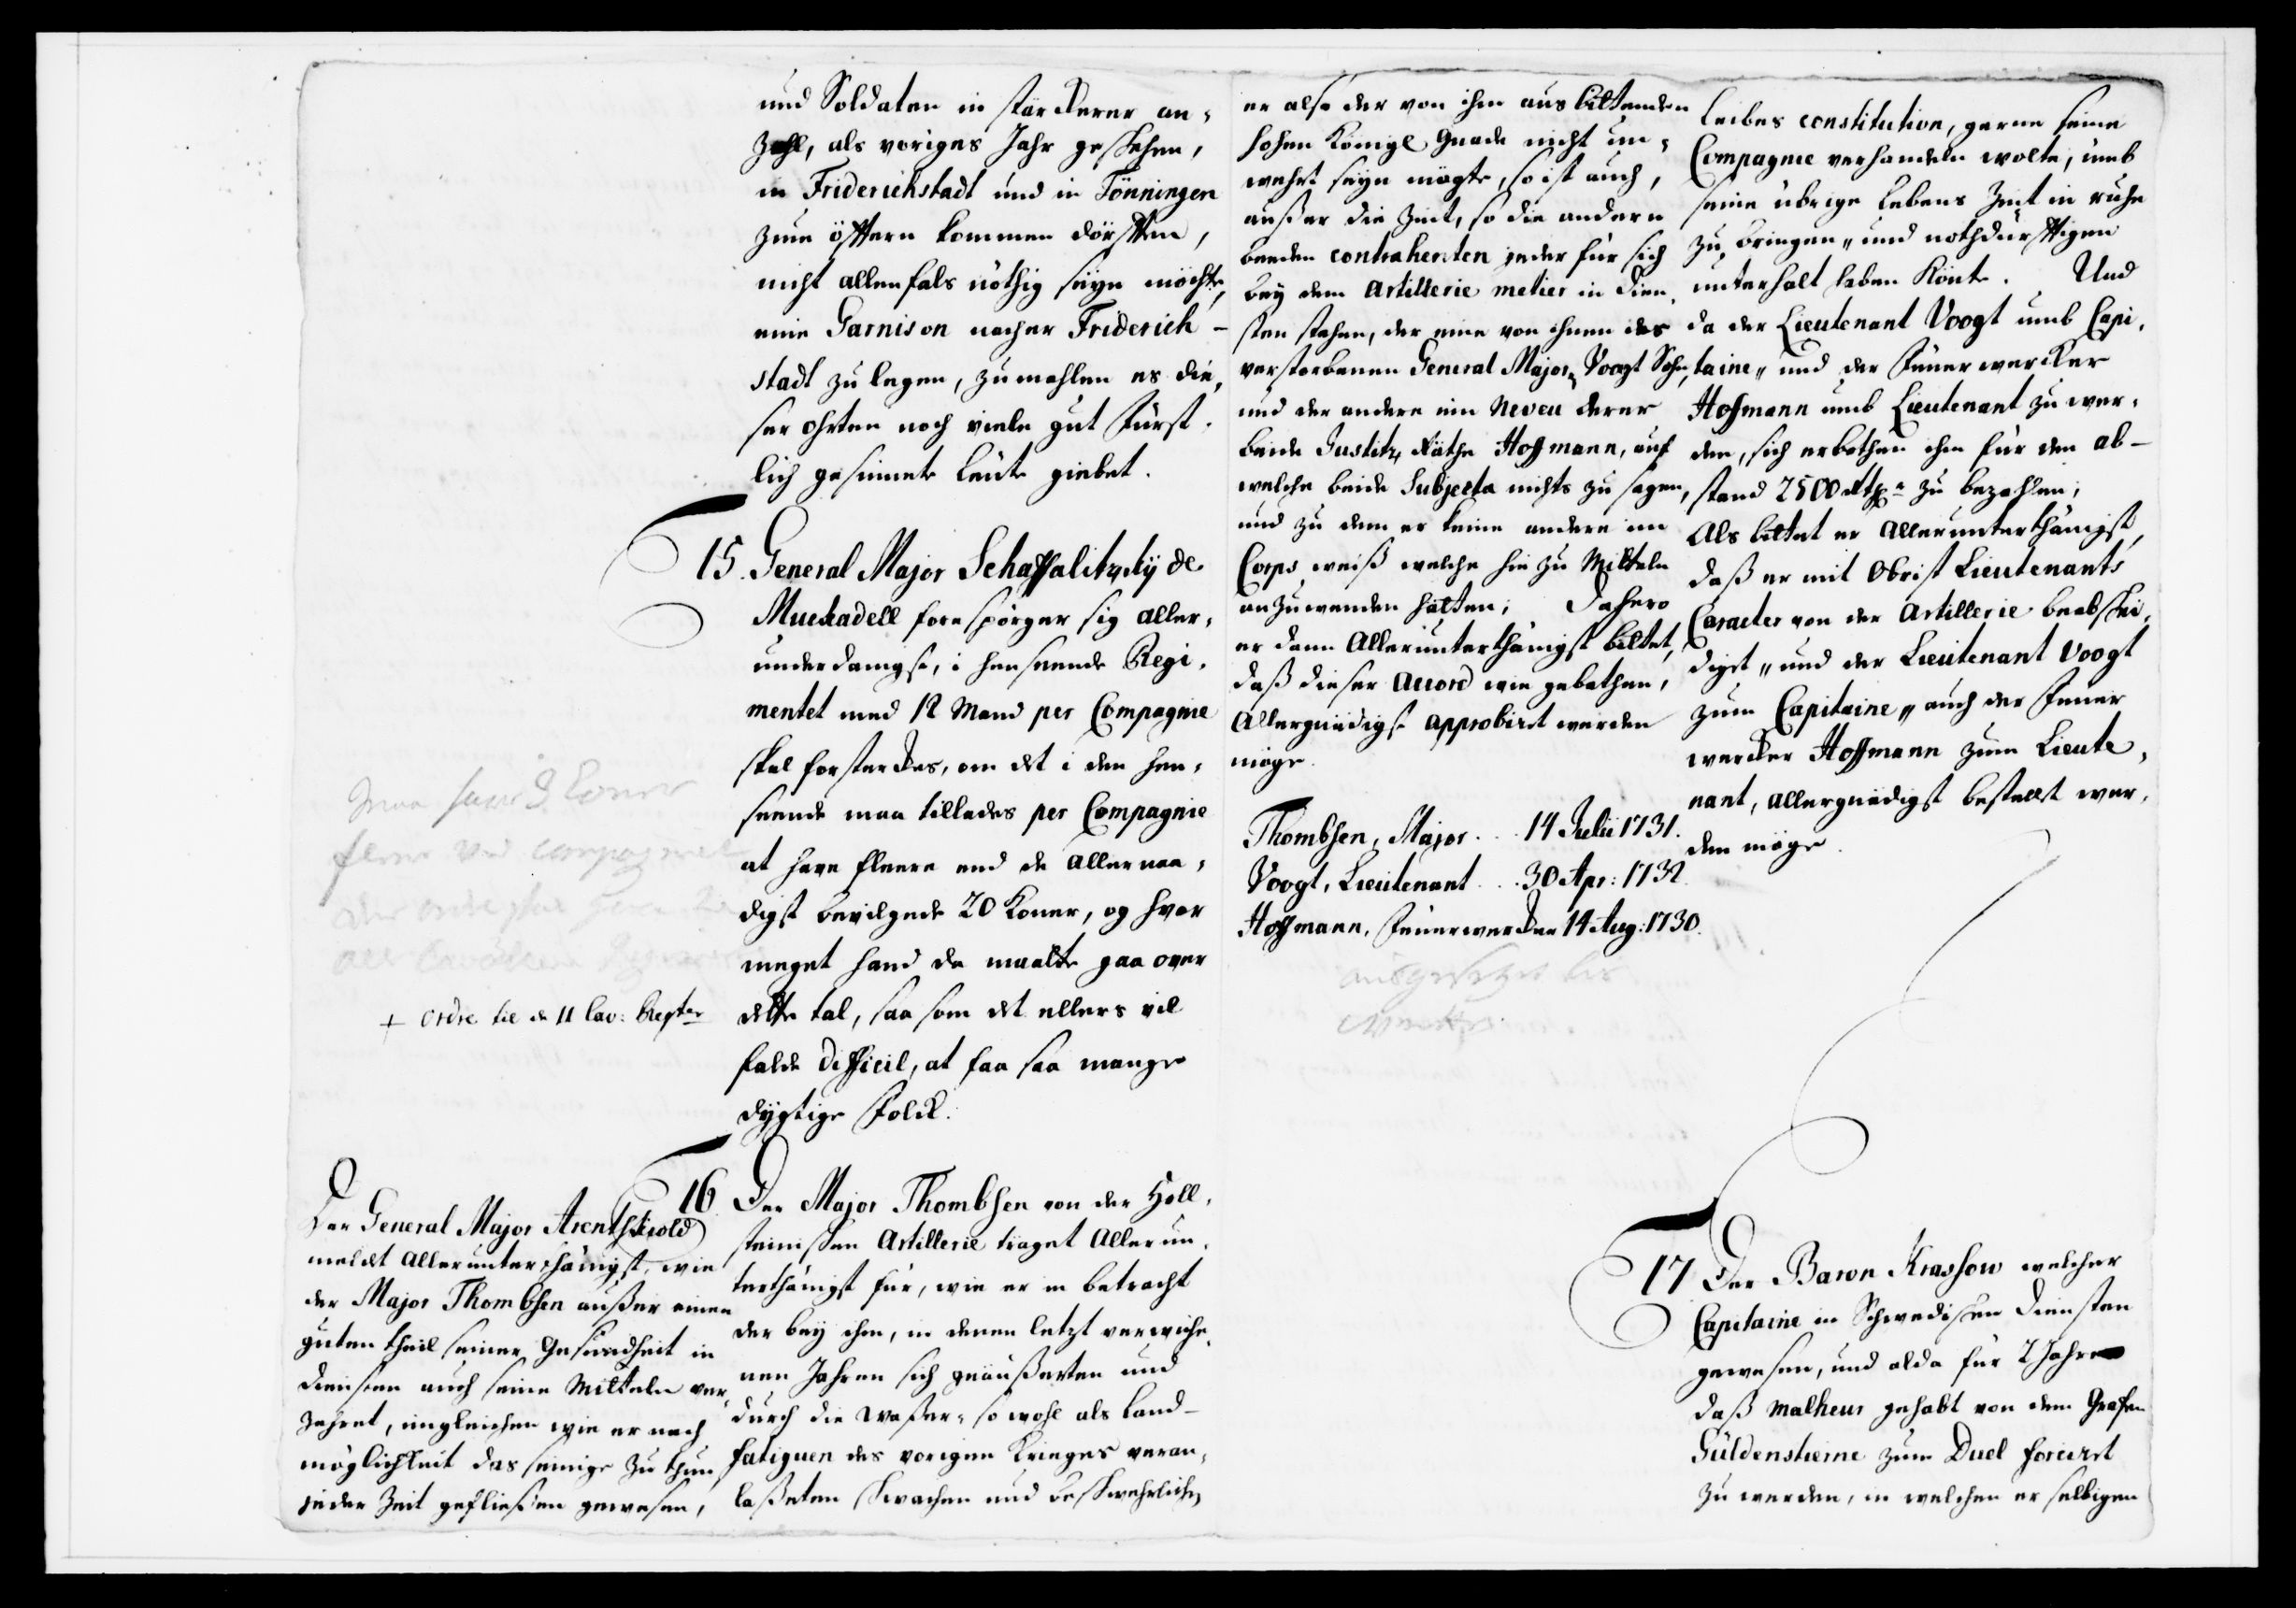 und Soldaten in stärckerer an-
zahl, als voriges Jahr geschehen,
in Friderichstadt und in Tönningen
zum öfftern kommen dörfften,
nicht allenfals nöthig seyn möchte,
eine Garnison nacher Friderich-
stadt zu legen, zumahlen es die-
ser ohrten noch viele gut Fürst-
lich gesinnete leute giebet.
15. General Major Schaffalitzky de
Muckadell forespörger sig aller-
underdanigst, i henseende Regi-
mentet med 12 Mand per Compagnie
skal forsterckes, om det i den hen-
seende maa tillades per Compagnie
at have fleere end de allernaa-
digst bevilgede 20 Koner, og hvor
meget hand da maatte gaa over
dette tal, saa som det ellers vil
falde difficil, at faa saa mange
dygtige Folck.
maa have Koner
fleere ved compagniet
+ Ordre til de 11 Cav: Regter
16
Der General Major Arenthskiold
meldet allerunterthänigst, wie
der Major Thombsen außer einen
guten theil seiner Gesundheit in
diensten auch seine Mitteln ver-
zehret, imgleichen wie er nach
möglichkeit das seinige zu thun
jeder Zeit gefließen gewesen,
Der Major Thombsen von der Holl-
steinischen Artillerie träget allerun-
terthänigst für, wie er in betracht
der bey ihm, in denen letzt verwiche-
nen Jahren sich geäußerten und
durch die Waßer- so wohl als Land-
fatiguen des vorigen Krieges veran-
laßeten schwachen und beschwehrlichen
er also der von ihm ausbittenden
hohen Königl Gnade nicht un-
wehrt seyn mögte, so ist auch,
außer die Zeit, so die andern
beeden contrahenten jeder für sich
bey dem Artillerie metier in dien-
sten stehen, der eine von ihnen des
verstorbenen General Major Voogt Sohn,
und der andere ein Neveu derer
beide Justitz Räthe Hoffmann, auf
welche beide Subjecta nichts zu sagen,
und zu dem er keine andere im
Corps weiß welche hiezu Mitteln
anzuwenden hätten; Dahero
er dann allerunterthänigst bittet,
daß dieser accord wie gebethen,
allergnädigst approbiret werden
möge.
Thombsen, Major . . 14 Julii 1731.
Voogt, Lieutenant . . 30 Apr: 1732.
Hoffmann, Feuerwercker 14 Aug: 1730.
ausgesetzet bis
leibes constitution, gerne seine
Compagnie verhandeln wolte, umb
seine übrige lebens Zeit in ruhe
zu bringen, und nothdürfftigen
unterhalt haben könte. Und
da der Lieutenant Voogt umb Capi-
taine, und der Feuerwercker
Hoffmann umb Lieutenant zu wer-
den, sich erbethen ihm für den ab-
stand 2500 Rthlr zu bezahlen;
Als bittet er allerunterthänigst,
daß er mit Obrist Lieutenants
Caracter von der Artillerie beabschei-
diget, und der Lieutenant Voogt
zum Capitaine, auch der Feuer
wercker Hoffmann zum Lieute-
nant, allergnädigst bestellt wer-
den möge.
17 Der Baron Krassow welcher
Capitaine in Schwedischen diensten
gewesen, und alda für 2 Jahre
daß malheur gehabt von dem Grafen
Güldenstierne zum Duel forciret
zu werden, in welchen er selbigen